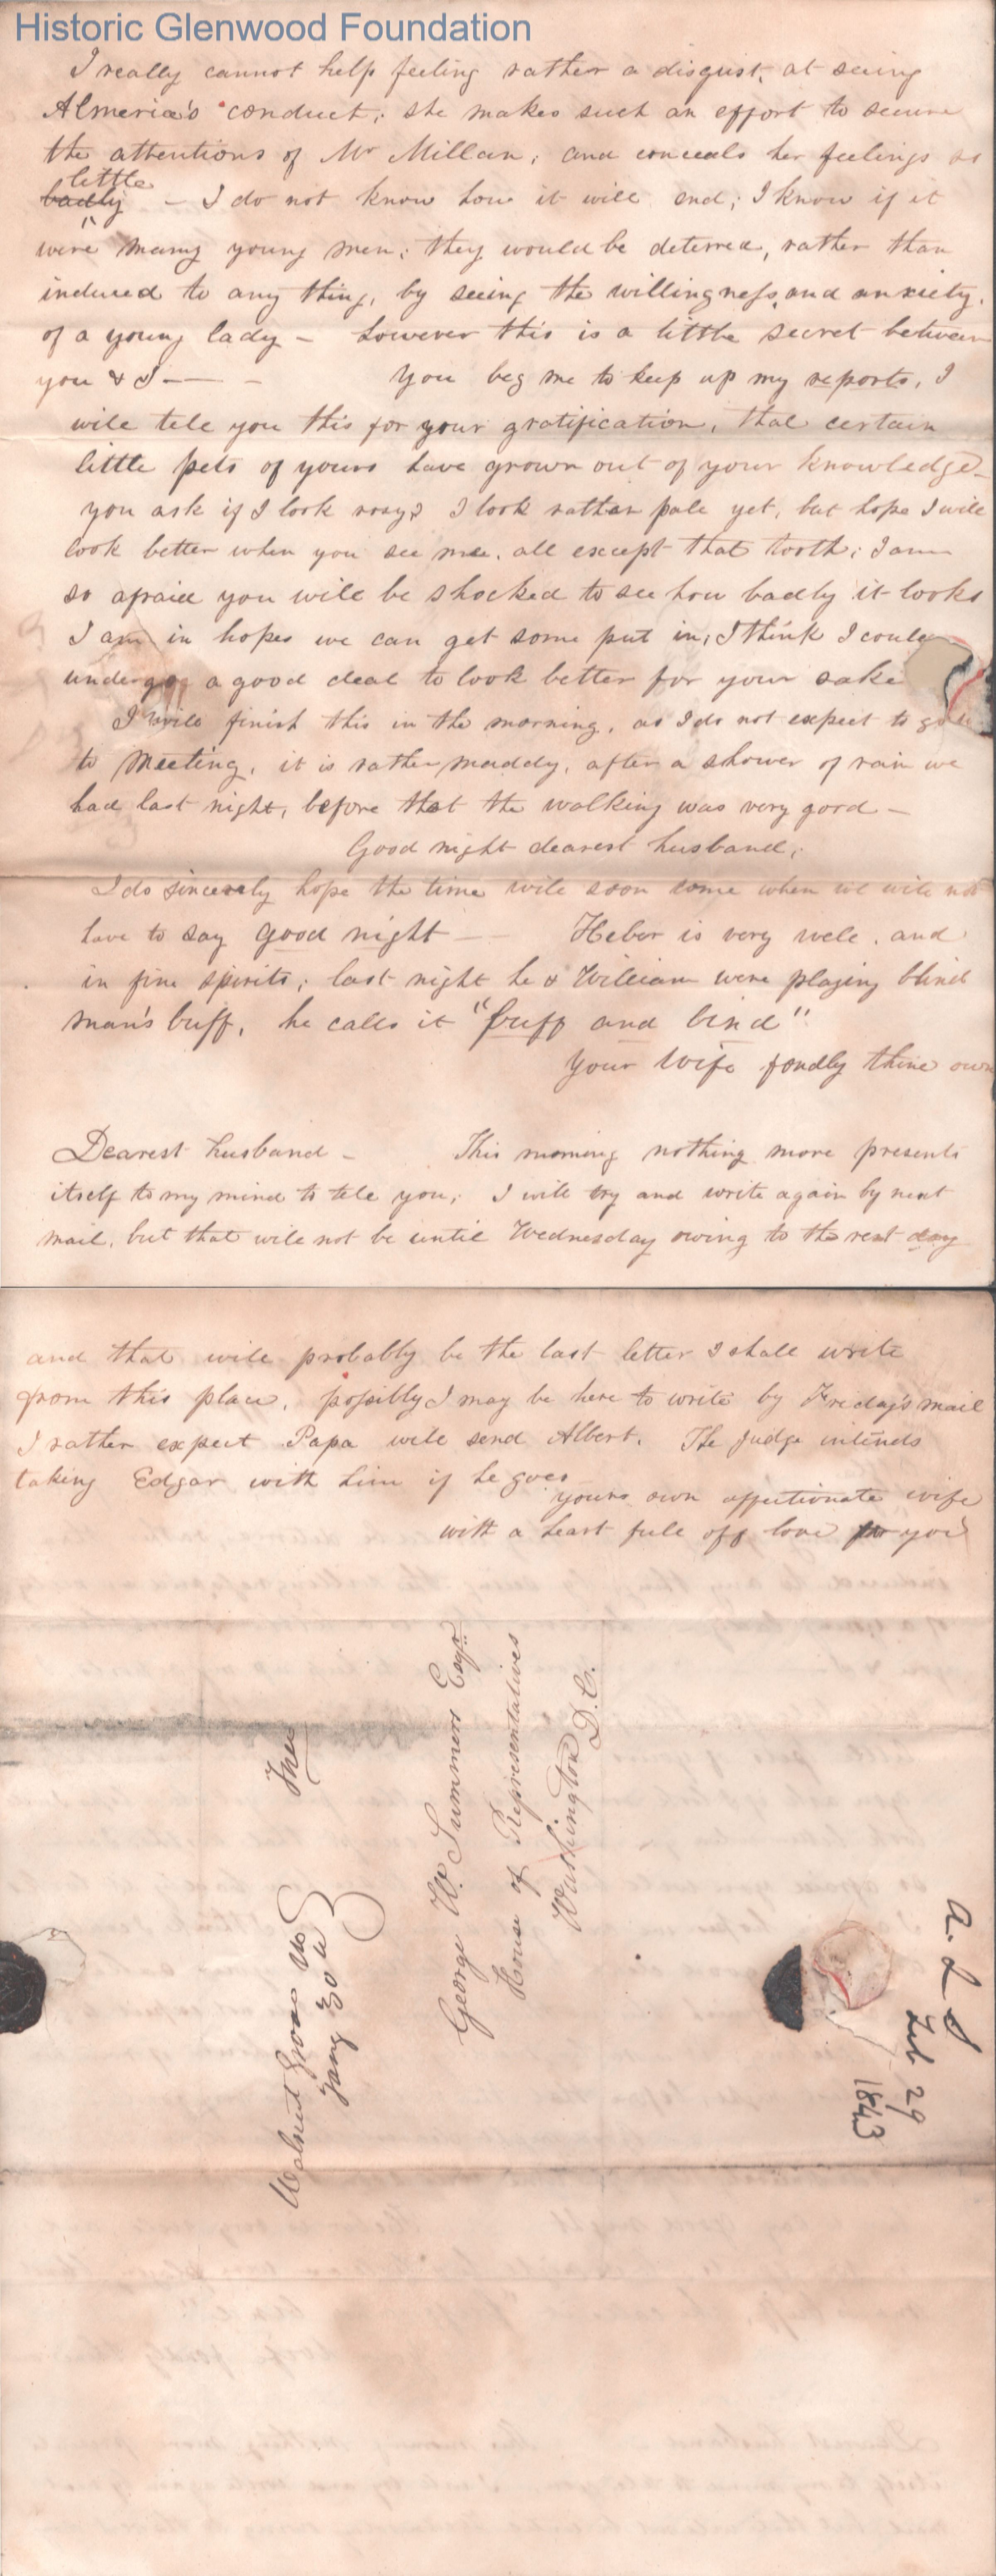 Historic Glenwood Foundation
I really cannot help feeling rather a disgust, at seeing
Almeria's conduct; she makes such an effort to secure
the attentions of Mr Millan; and conceals her feelings so
little
badly — I do not know how it will end; I know if it
were many young men; they would be deterred, rather than
induced to any thing, by seeing the willingness, and anxiety,
of a young lady — however this is a little secret between
you & I — — You beg me to keep up my reports, I
will tell you this for your gratification, that certain
little pets of yours have grown out of your knowledge —
you ask if I look rosy? I look rather pale yet, but hope I will
look better when you see me, all except that tooth; I am
so afraid you will be shocked to see how badly it looks
I am in hopes we can get some put in, I think I could
undergo a good deal to look better for your sake
I will finish this in the morning, as I do not expect to go
to Meeting, it is rather muddy, after a shower of rain we
had last night, before that the walking was very good —
Good night dearest husband,
I do sincerely hope the time will soon come when we will not
have to say good night — Heber is very well, and
in fine spirits; last night he & William were playing blind
man's buff, he calls it "buff and bind"
Your wife fondly thine own
Dearest husband — This morning nothing more presents
itself to my mind to tell you, I will try and write again by next
mail, but that will not be until Wednesday owing to the rest day
and that will probably be the last letter I shall write
from this place, possibly I may be here to write by Friday's mail
I rather expect Papa will send Albert. The Judge intends
taking Edgar with him if he goes
yours own affectionate wife
with a heart full off love for you
Walnut Grove Va
Jany 30th
Free
George W. Summers Esqr.
House of Representatives
Washington D.C.
A. L S
Feb 29
1843